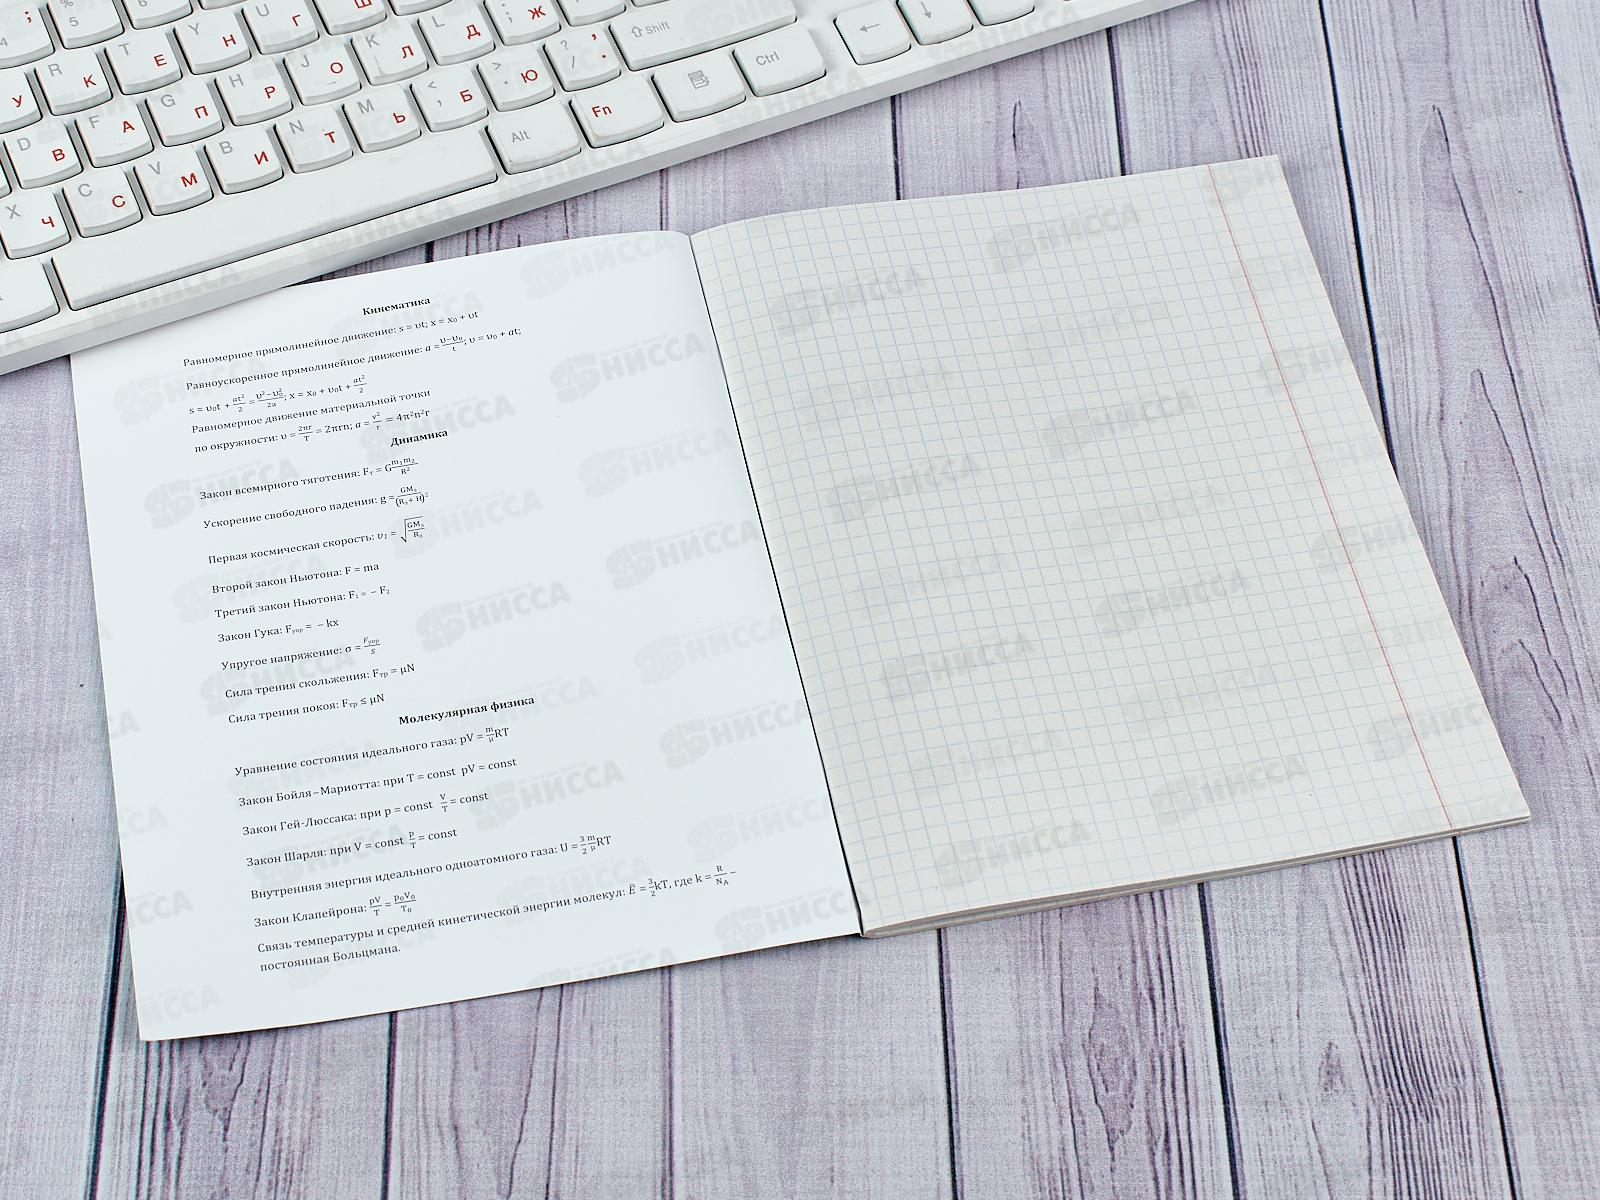 Кинематика
Равномерное прямолинейное движение: s = υt; x = x₀ + υt
Равноускоренное прямолинейное движение: a = (υ−υ₀)/t; υ = υ₀ + at;
s = υ₀t + at²/2 = (υ²−υ₀²)/2a; x = x₀ + υ₀t + at²/2
Равномерное движение материальной точки
по окружности: υ = 2πr/T = 2πrn; a = v²/r = 4π²n²r
Динамика
Закон всемирного тяготения: Fт = G m₁m₂/R²
Ускорение свободного падения: g = GMз/(Rз + H)²
Первая космическая скорость: υ₁ = √(GMз/Rз)
Второй закон Ньютона: F = ma
Третий закон Ньютона: F₁ = − F₂
Закон Гука: Fупр = − kx
Упругое напряжение: σ = Fупр/S
Сила трения скольжения: Fтр = μN
Сила трения покоя: Fтр ≤ μN
Молекулярная физика
Уравнение состояния идеального газа: pV = m/μ RT
Закон Бойля–Мариотта: при T = const pV = const
Закон Гей-Люссака: при p = const V/T = const
Закон Шарля: при V = const p/T = const
Внутренняя энергия идеального одноатомного газа: U = 3/2 m/μ RT
Закон Клапейрона: pV/T = p₀V₀/T₀
Связь температуры и средней кинетической энергии молекул: Ē = 3/2 kT, где k = R/NA –
постоянная Больцмана.
4 ; % 5 6
R К T Е Y Н U Г Ш
У F А G П H Р J О K Л L Д ; : Ж
D В C С V М B И N Т M Ь < , Б > . Ю ? / , . Shift
X Ч Alt Fn Ctrl ← ↓
НИССА